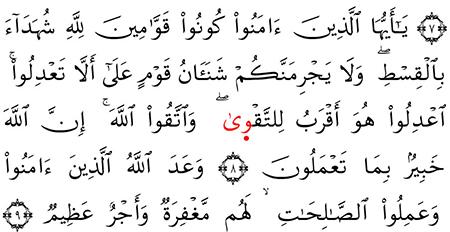 ﴿٧﴾ يَـٰٓأَيُّهَا ٱلَّذِينَ ءَامَنُوا۟ كُونُوا۟ قَوَّٰمِينَ لِلَّهِ شُهَدَآءَ
بِٱلْقِسْطِ ۖ وَلَا يَجْرِمَنَّكُمْ شَنَـَٔانُ قَوْمٍ عَلَىٰٓ أَلَّا تَعْدِلُوا۟ ۚ
ٱعْدِلُوا۟ هُوَ أَقْرَبُ لِلتَّقْوىٰ ۖ وَٱتَّقُوا۟ ٱللَّهَ ۚ إِنَّ ٱللَّهَ
خَبِيرٌۢ بِمَا تَعْمَلُونَ ﴿٨﴾ وَعَدَ ٱللَّهُ ٱلَّذِينَ ءَامَنُوا۟
وَعَمِلُوا۟ ٱلصَّـٰلِحَـٰتِ ۙ لَهُم مَّغْفِرَةٌ وَأَجْرٌ عَظِيمٌ ﴿٩﴾